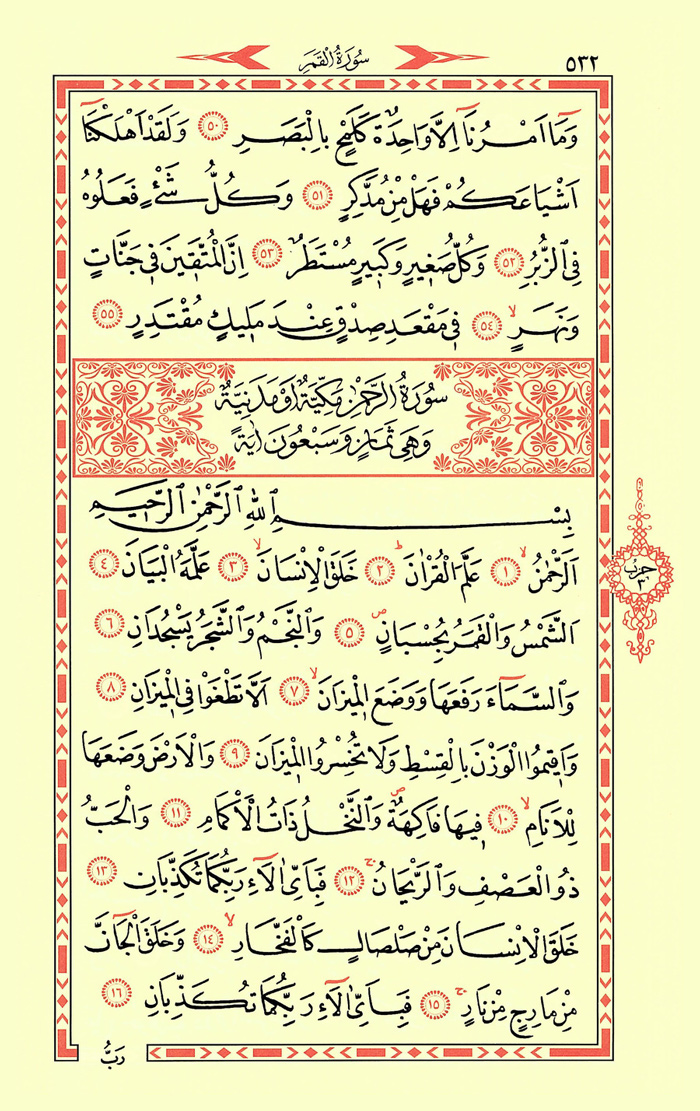 ٥٣٢
سُورَةُ الْقَمَرِ
وَمَٓا اَمْرُنَٓا اِلَّا وَاحِدَةٌ كَلَمْحٍ بِالْبَصَرِ ﴿٥٠﴾ وَلَقَدْ اَهْلَكْنَٓا
اَشْيَاعَكُمْ فَهَلْ مِنْ مُدَّكِرٍ ﴿٥١﴾ وَكُلُّ شَيْءٍ فَعَلُوهُ
فِي الزُّبُرِ ﴿٥٢﴾ وَكُلُّ صَغِيرٍ وَكَبِيرٍ مُسْتَطَرٌ ﴿٥٣﴾ اِنَّ الْمُتَّقِينَ فِي جَنَّاتٍ
وَنَهَرٍ ۙ ﴿٥٤﴾ فِي مَقْعَدِ صِدْقٍ عِنْدَ مَلِيكٍ مُقْتَدِرٍ ﴿٥٥﴾
سُورَةُ الرَّحْمٰنِ مَكِّيَّةٌ اَوْ مَدَنِيَّةٌ
وَهِيَ ثَمَانٍ وَسَبْعُونَ اٰيَةً
بِسْمِ اللّٰهِ الرَّحْمٰنِ الرَّحِيمِ
اَلرَّحْمٰنُ ۙ ﴿١﴾ عَلَّمَ الْقُرْاٰنَ ؕ ﴿٢﴾ خَلَقَ الْاِنْسَانَ ۙ ﴿٣﴾ عَلَّمَهُ الْبَيَانَ ﴿٤﴾
اَلشَّمْسُ وَالْقَمَرُ بِحُسْبَانٍ ۖ ﴿٥﴾ وَالنَّجْمُ وَالشَّجَرُ يَسْجُدَانِ ﴿٦﴾
وَالسَّمَٓاءَ رَفَعَهَا وَوَضَعَ الْمِيزَانَ ۙ ﴿٧﴾ اَلَّا تَطْغَوْا فِي الْمِيزَانِ ﴿٨﴾
وَاَقِيمُوا الْوَزْنَ بِالْقِسْطِ وَلَا تُخْسِرُوا الْمِيزَانَ ﴿٩﴾ وَالْاَرْضَ وَضَعَهَا
لِلْاَنَامِ ۙ ﴿١٠﴾ فِيهَا فَاكِهَةٌ ۖ وَالنَّخْلُ ذَاتُ الْاَكْمَامِ ﴿١١﴾ وَالْحَبُّ
ذُو الْعَصْفِ وَالرَّيْحَانُ ۚ ﴿١٢﴾ فَبِاَيِّ اٰلَٓاءِ رَبِّكُمَا تُكَذِّبَانِ ﴿١٣﴾
خَلَقَ الْاِنْسَانَ مِنْ صَلْصَالٍ كَالْفَخَّارِ ۙ ﴿١٤﴾ وَخَلَقَ الْجَٓانَّ
مِنْ مَارِجٍ مِنْ نَارٍ ۚ ﴿١٥﴾ فَبِاَيِّ اٰلَٓاءِ رَبِّكُمَا تُكَذِّبَانِ ﴿١٦﴾
حزب
٣
رَبُّ